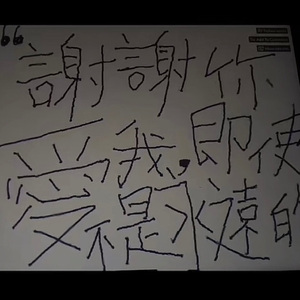 “謝謝你
愛我，即使
不是永遠的